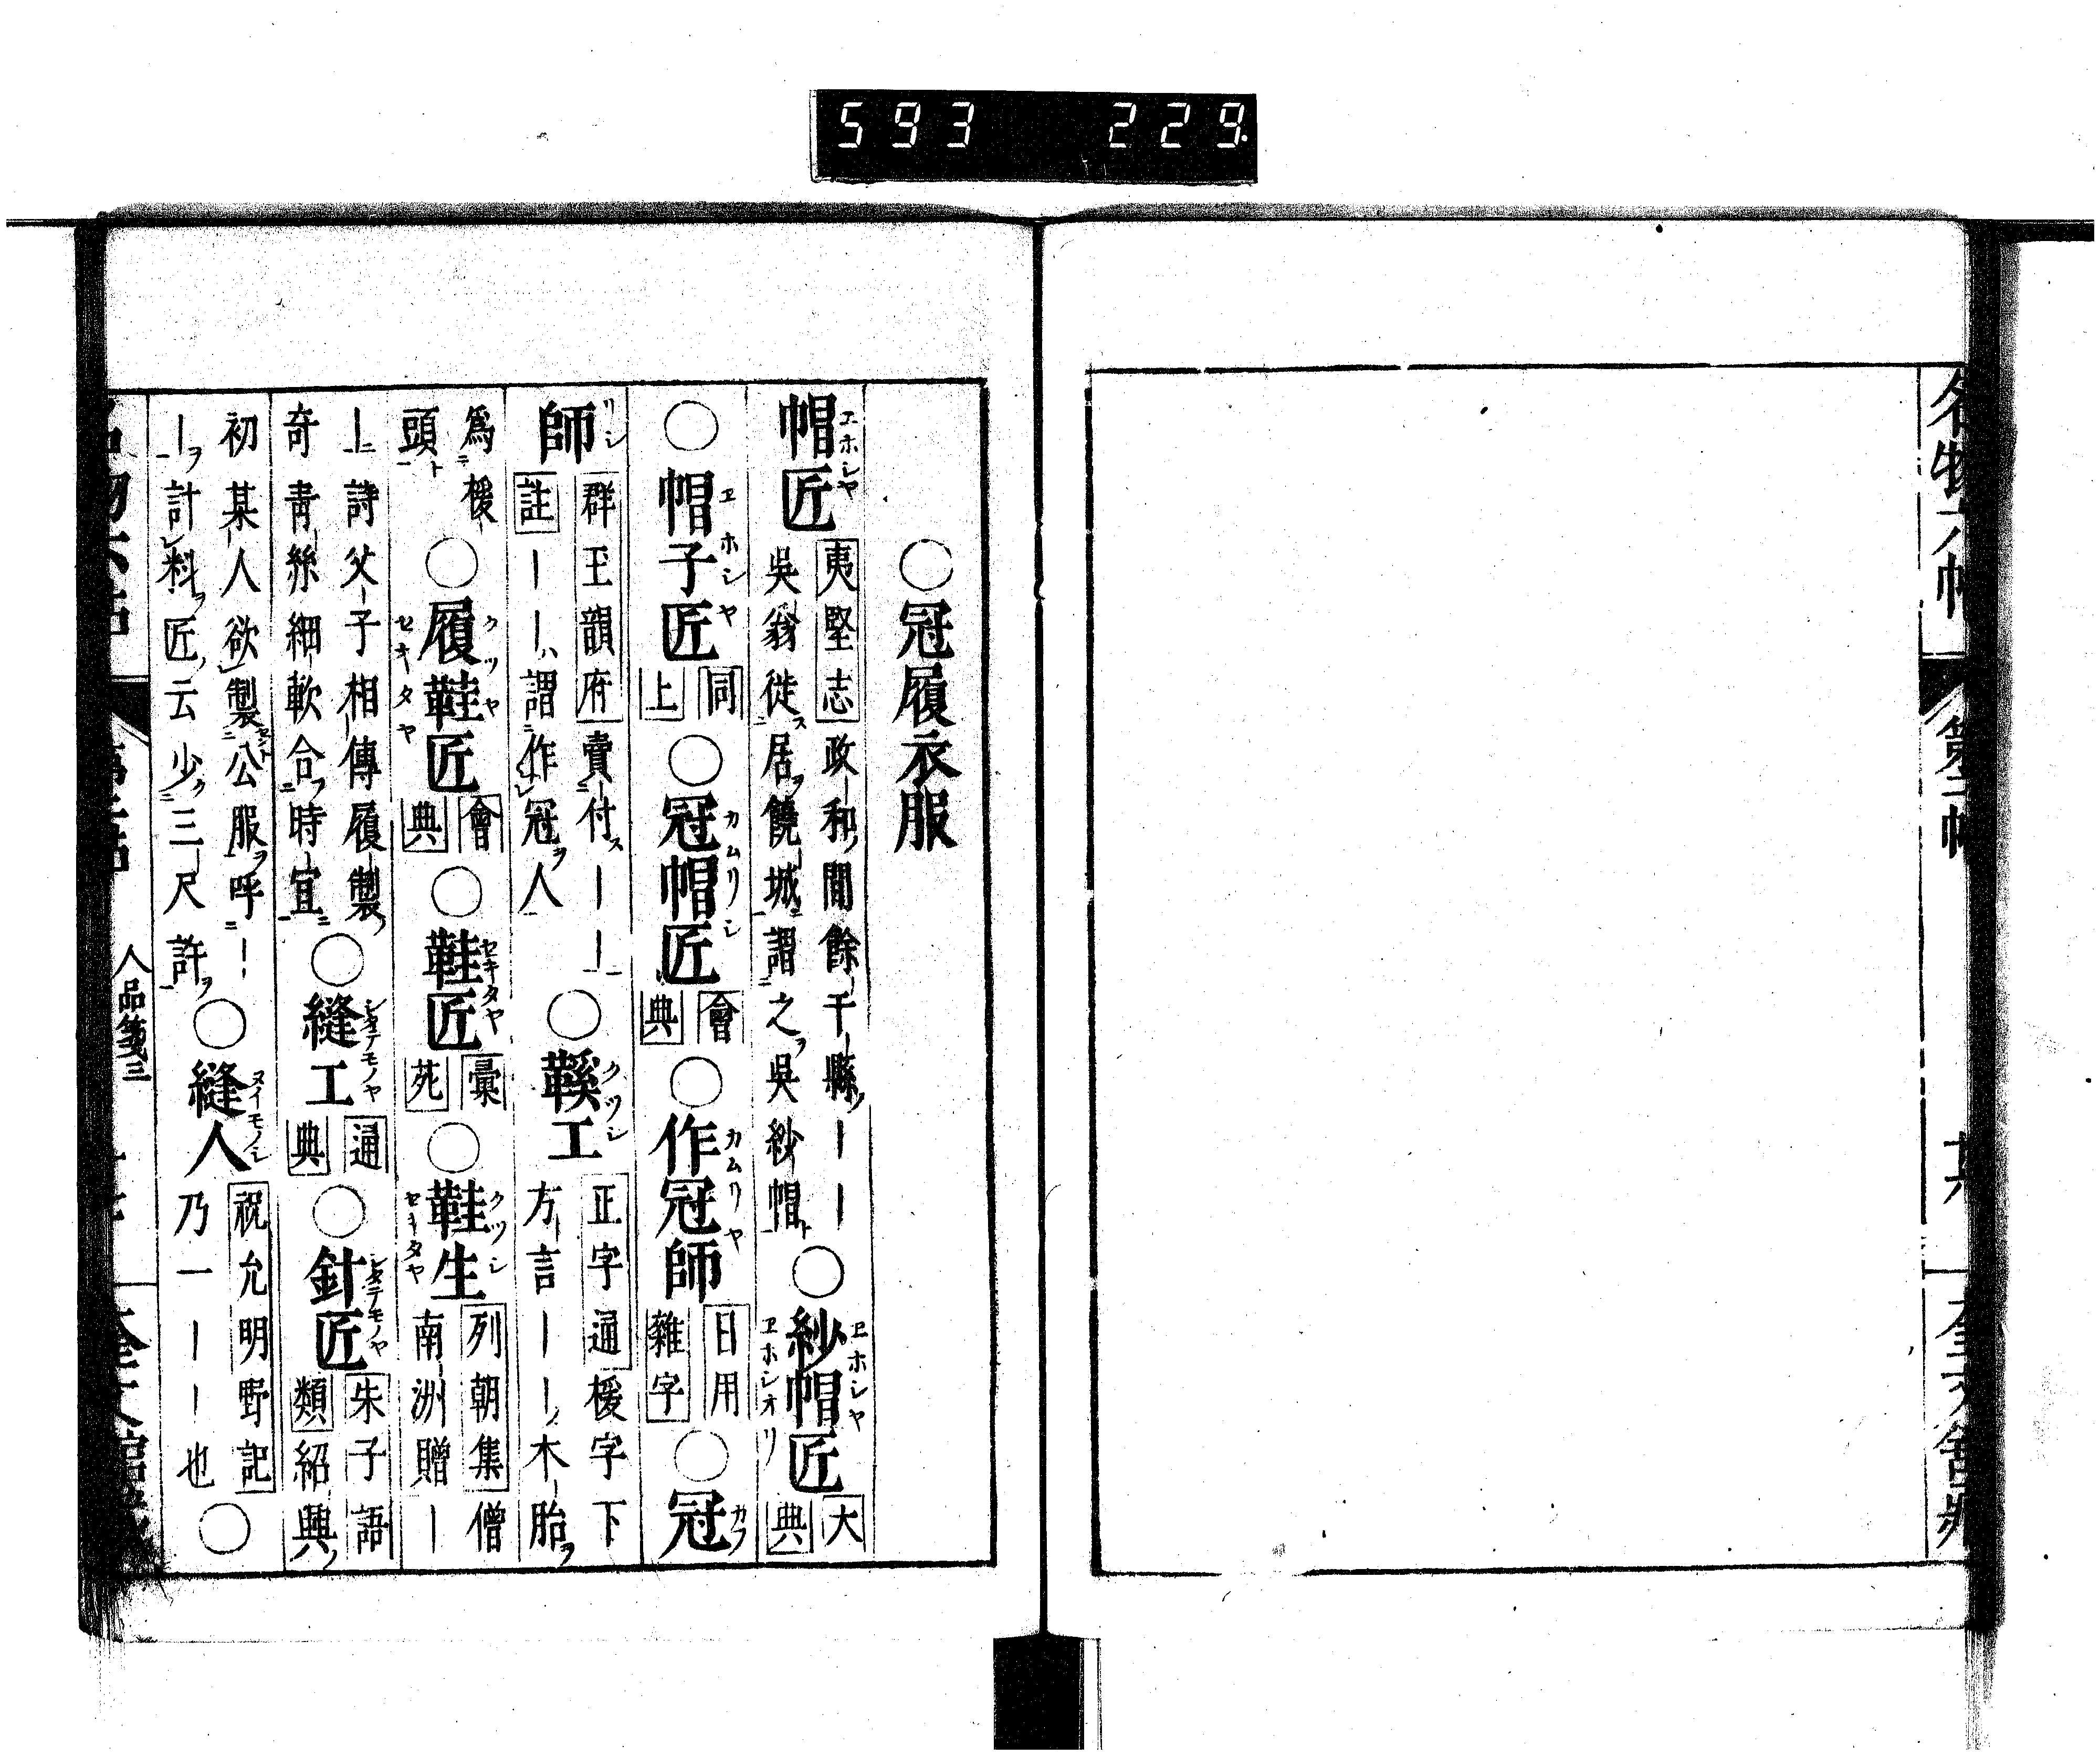 593 229.
名物六帖 第二帖
○冠履衣服
帽匠 エホシヤ 夷堅志 政和間餘干縣ノ｜｜
吳翁徙居饒城謂之吳紗帽 ○紗帽匠 ヱホシヤ ヱホシオリ 大典
○帽子匠 ヱホシヤ 同上 ○冠帽匠 カムリシ 會典 ○作冠師 カムリヤ 日用雜字 ○冠
師 群玉韻府 賣付｜｜
註 ｜｜ハ謂作冠人 ○鞵工 クツシ 正字通 楥字下
方言｜｜ノ木胎ヲ
爲楥
頭 ○履鞋匠 クツヤ セキタヤ 會典 ○鞋匠 セキタヤ 彙苑 ○鞋生 クツシ セキタヤ 列朝集 僧
南洲贈｜
｜詩父子相傳履製
奇青絲細軟合時宜 ○縫工 シタテモノヤ 通典 ○針匠 シタテモノヤ 朱子語
類 紹興ノ
初某人欲製公服ヲ呼｜
｜計料匠云少三尺許 ○縫人 ヌイモノシ 祝允明野記
乃一｜｜也 ○
人品箋三